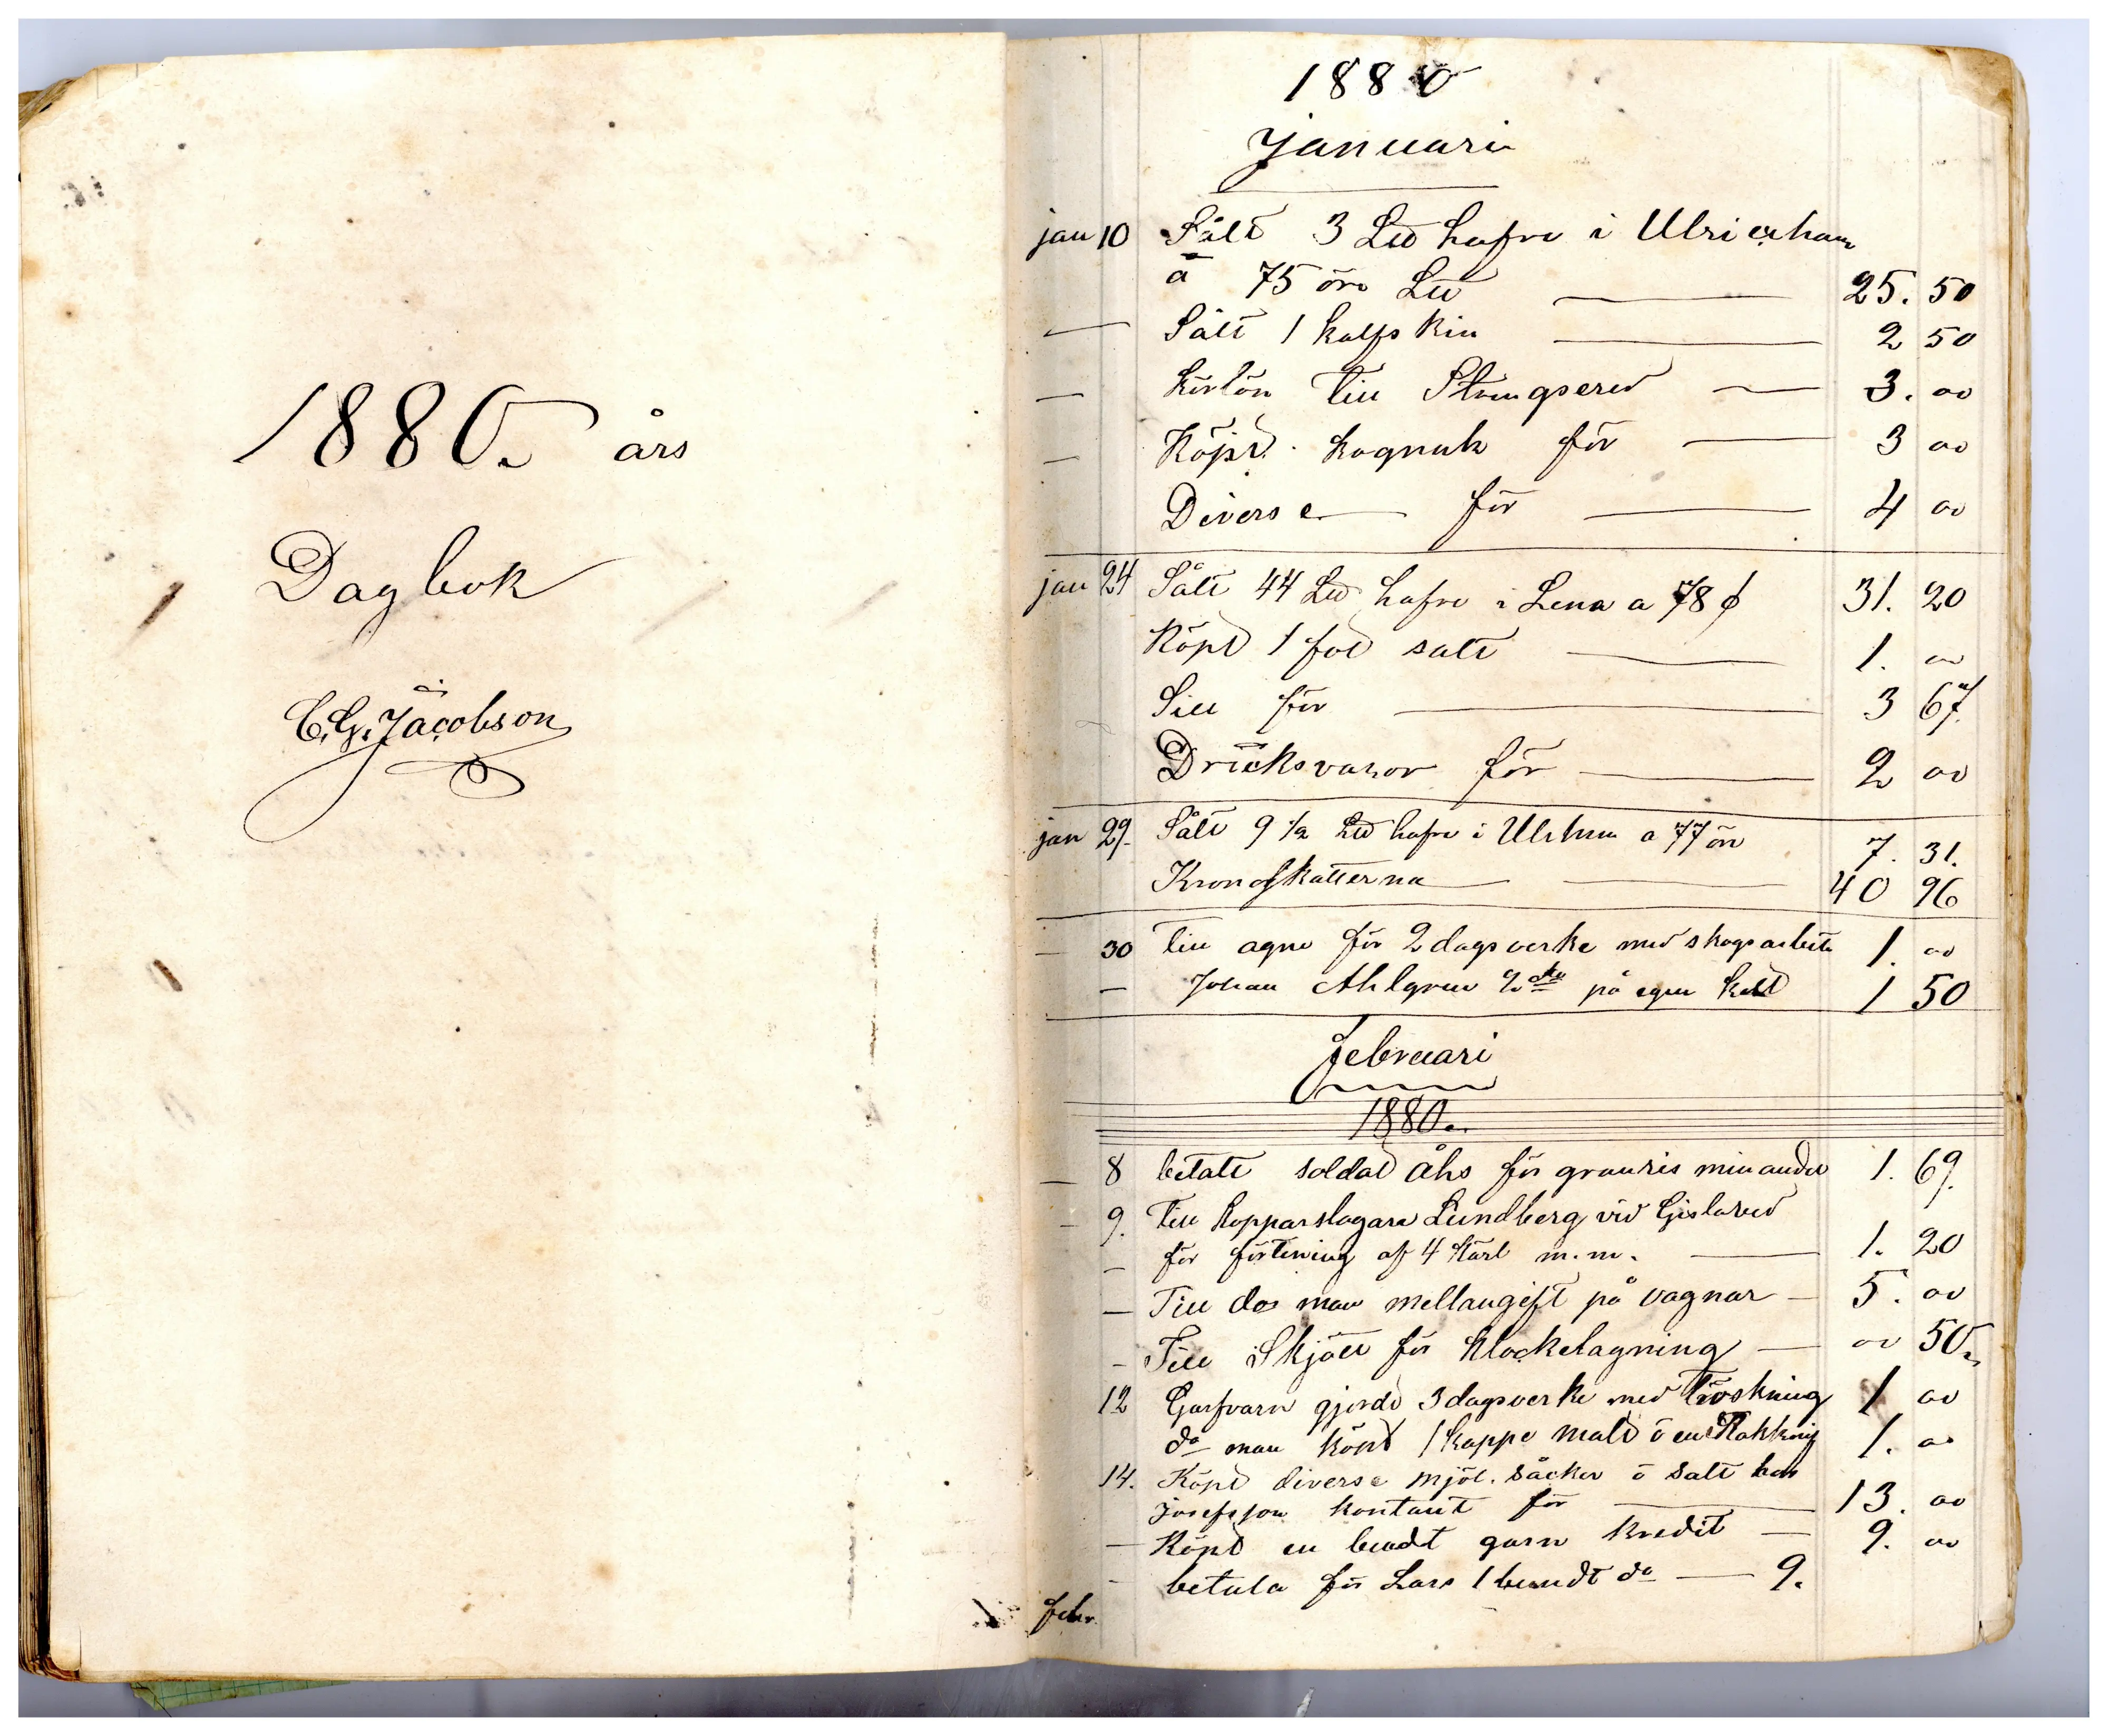 1880. års
Dagbok
C. G. Jacobson
1880
Januari
jan 10 Sålt 3 Ltt hafre i Ulricæham
a 75 öre Ltt — 25. 50
— Sålt 1 kalfskin — 2 50
— körlön till Strengsered — 3. oo
— Köpt kognak för — 3 oo
Diverse för — 4 oo
jan 24 Sålt 44 Ltt hafre i Lena a 78 31. 20
Köpt 1 fot salt — 1. oo
Sill för — 3 67.
Dricksvaror för — 2 oo
jan 29. Sålt 9 1/2 Ltt hafre i Ulrhm a 77 öre 7. 31.
Kronoskatterna — 40 96
— 30 till agne för 2 dagsverke med skogsarbete 1. oo
— Johan Ahlgren 2 do på egen kost 1 50
februari
1880.
— 8 betalt soldat Åhs för granris min andel 1. 69.
— 9. till kopparslagare Lundberg vid Gislared
— för förtening af 4 kärl m.m. — 1. 20
— Till dos man mellangift på vagnar — 5. oo
— Till Skjött för klockelagning — oo 50
12 Garfvarn gjorde 3 dagsverke med tröskning 1 oo
do man köpt 1 kappe malt o en 1. oo
14. Köpt diverse mjöl. säcker o salt hos
Josefsson kontant för — 13. oo
— Köpt en bundt garn kredit — 9. oo
— betala för Lars 1 bundt do — 9.
febr.